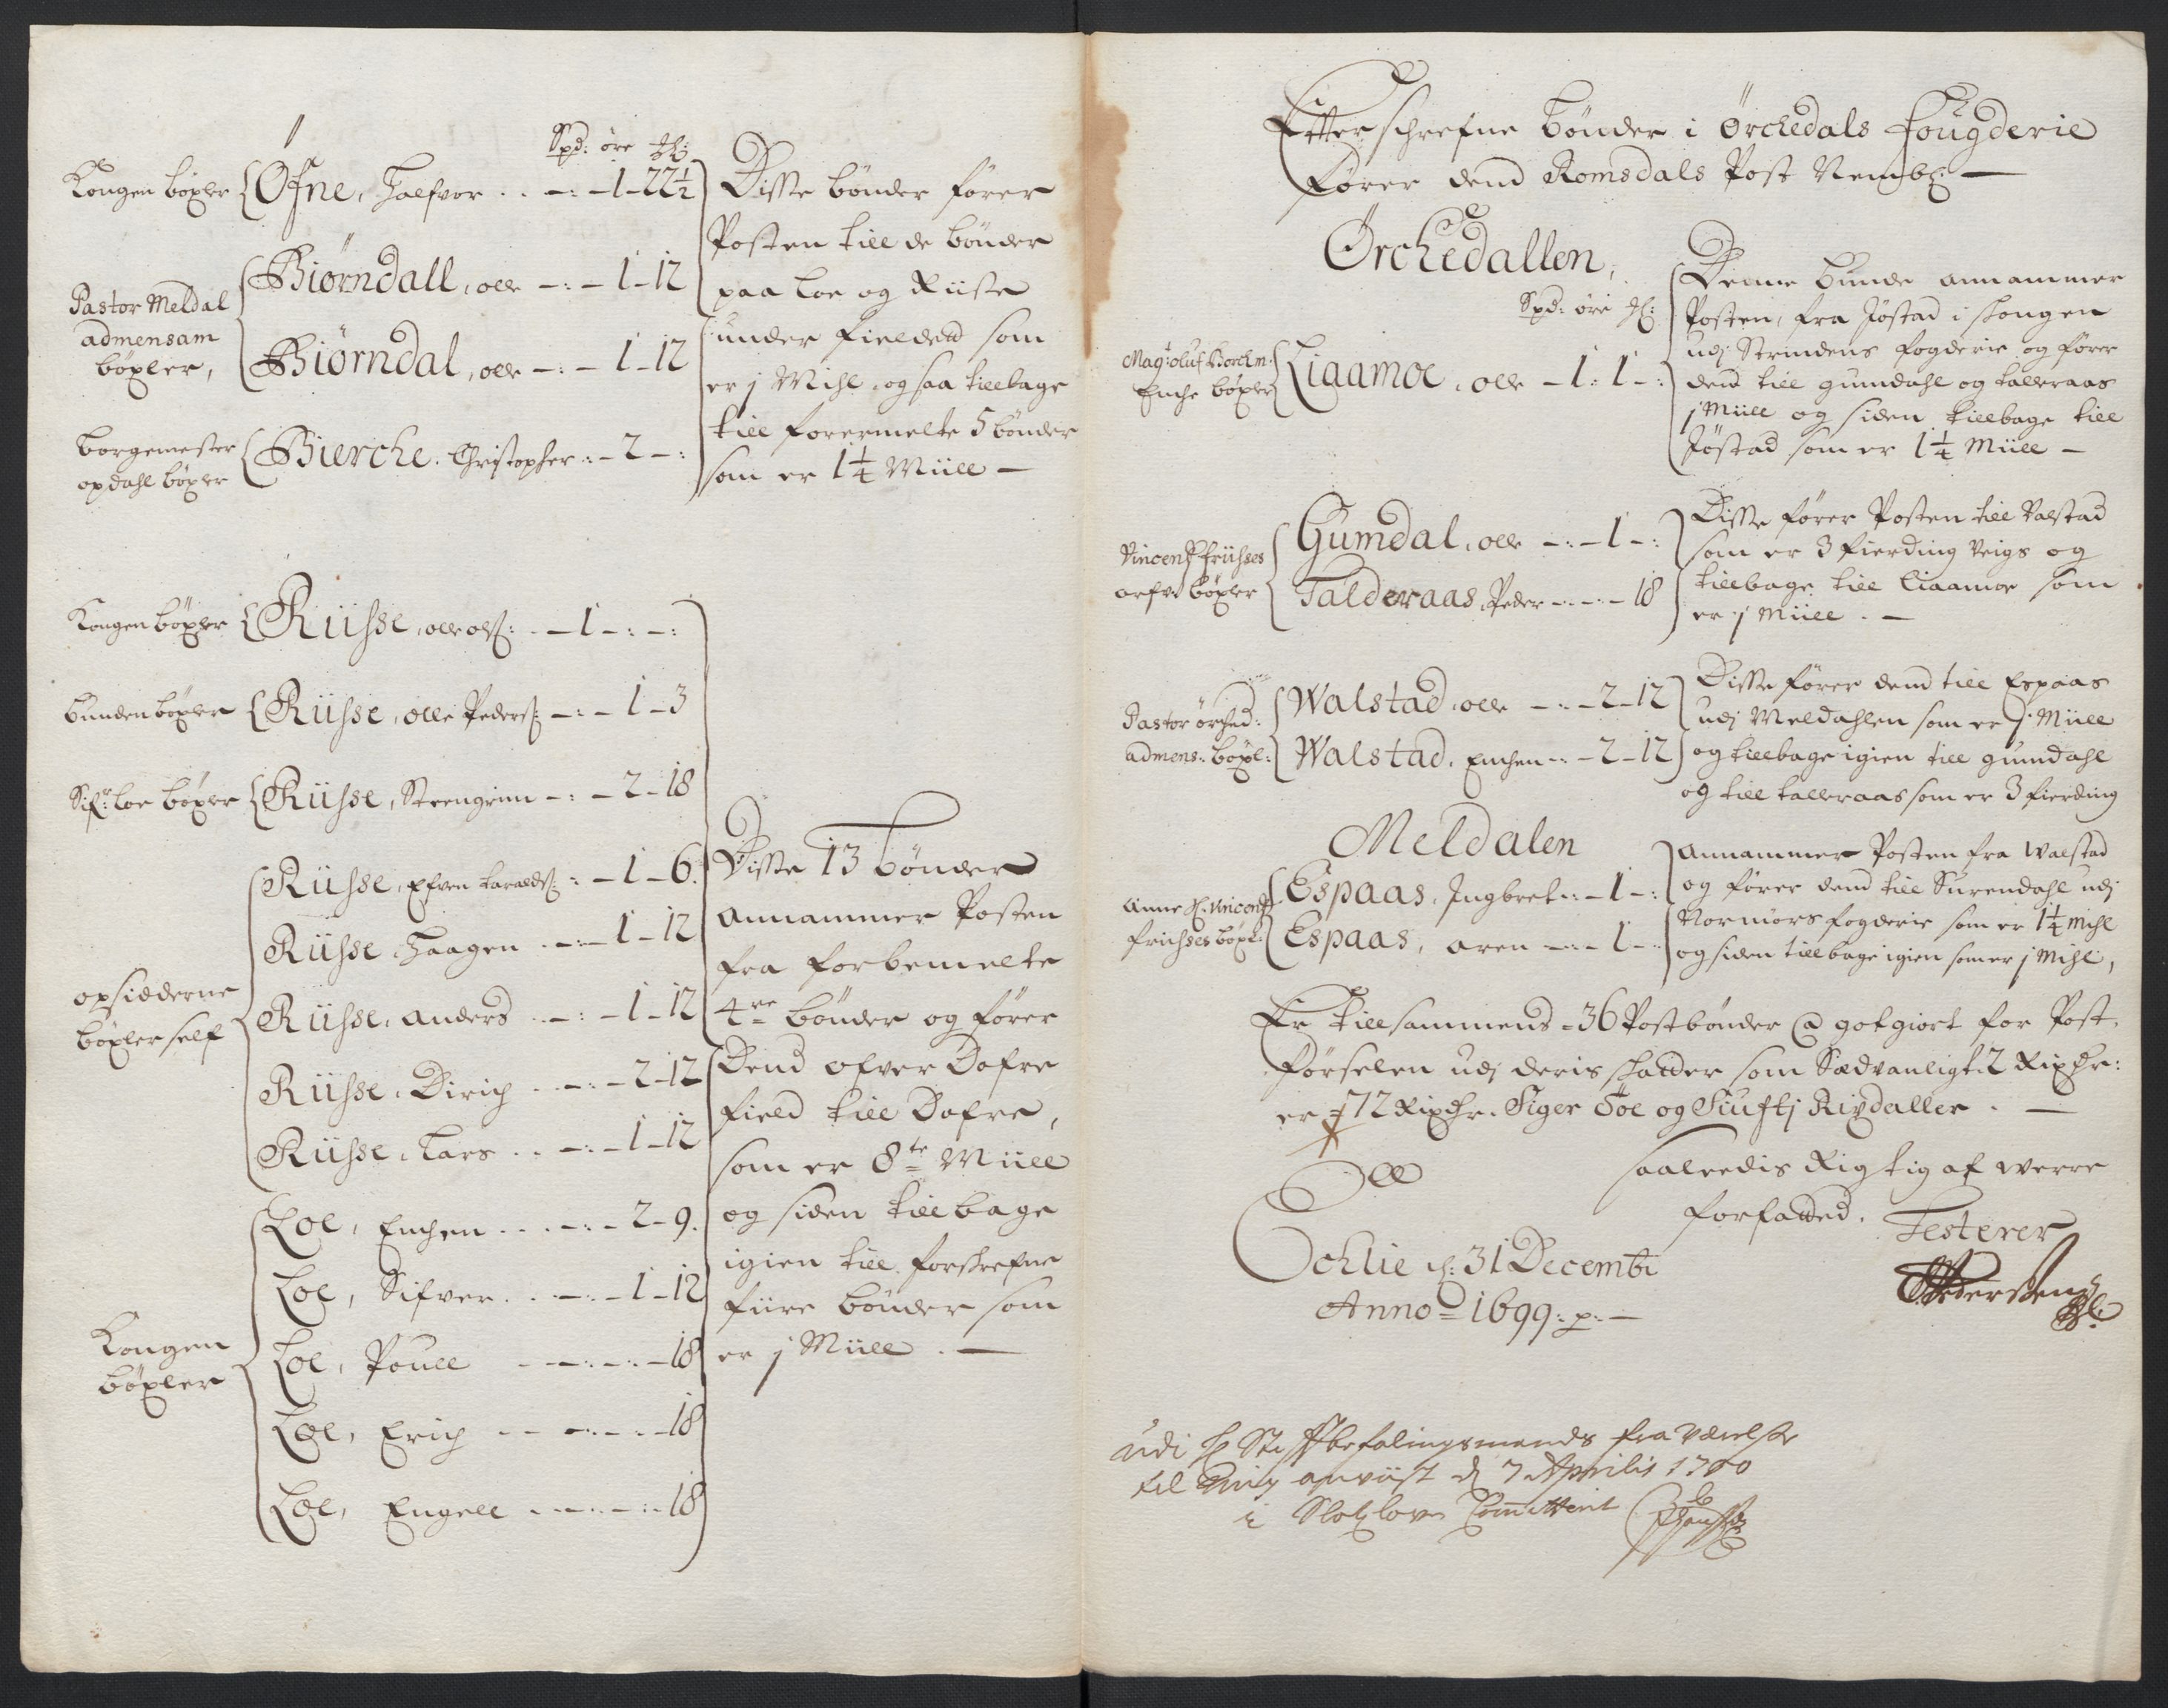 Spd: øre
Kongen bøxler Øfne, Halfvor . . – : – 1 – 22½
Pastor Meldal
admensam
bøxler,
Biørndall, olle – : – 1 – 12
Biørndal, olle – : – 1 – 12
Borgemester
opdahl bøxler
Bierche. Christopher : – 2 – :
Disse bønder fører
Posten till de bønder
paa Loe og Riise
under fieldet som
er j Mihl, og saa tilbage
till forermelte 5 bønder
som er 1¼ Miill –
Kongen bøxler Riisse, olle olsß: . – 1 – : – :
bunden bøxler Riisse, olle Pederß: – : – 1 – 3
Sifr: Loe bøxler Riisse, Steengrim – : – 2 – 18
opsidderne
bøxler self
Riisse, Efven haraldß: : – 1 – 6.
Riisse, Haagen . – : – 1 – 12
Riisse, anders . – : – 1 – 12
Riisse, Dirich . . – : – 2 – 12
Riisse, Lars . . – : – 1 – 12
Kongen
bøxler
Loe, Enchen . . . – : – 2 – 9.
Loe, Sifver . . – : – 1 – 12
Loe, Pouell . – – : – : – 18
Loe, Erich – – – : – : – 18
Loe, Engell – – – : – : 18
Disse 13 bønder
annammer Posten
fra forbemelte
4re bønder og fører
Dend ofver Dofre
field till Dofre,
som er 8te Miill
og siden tillbage
igien till forschrefne
fiire bønder som
er j Miill . –
Efterschrefne bønder i Ørchedals Fougderie
fører dend Romsdals Post Nembl: –
Ørchedallen,
Spd: øre
Mag: oluf Borchm:
Enche bøxler
Liaamoe, olle – 1 : 1 – :
Denne bunde annammer
Posten, fra Jøstad i schongen
udj Strindens fogderie og fører
dend till gumdahl og talleraas
j Miill og siden tillbage till
Jøstad som er 1¼ Miill –
Vincentz friisses
arfve bøxler
Gumdal, olle – : – 1 – :
Talderaas, Peder – – : – 18
Disse fører Posten till Valstad
som er 3 fierding Veigs og
tillbage till Liaamoe som
er j Miill . –
Pastor ørched:
admens: bøxl:
Walstad, olle – : – 2 – 12
Walstad, Enchen – : – 2 – 12
Disse fører dend till Espaas
udj Meldahlen som er j Miill
og tillbage igien till gumdahl
og till talleraas som er 3 fierding
Meldalen
Anne Sl: Vincentz
frichses bøxl:
Espaas, Ingbret – : – 1 – :
Espaas, aren – : – 1 – :
Annammer Posten fra Walstad
og fører dend till Surendahl udj
Normørs fogderie som er 1¼ Mihl
og siden tillbage igien som er j Mihl,
Er tillsammens – 36 Postbønder @ gotgiort for Post-
førselen udj deris schatter som Sædvanligt 2 Rixdlr:
er 72 Rixdlr. Siger Toe og Siuftj Rixdaller . –
saaledis Rigtig af werre
forfatted. Testerer
Ochlie d: 31 Decembr
Anno 1699: p: –
Pedersen
udi hr Stiftbefalingsmands fraværelse
til Ting anviist d 7 Aprilis 1700
i Slotzlovn Comitterit